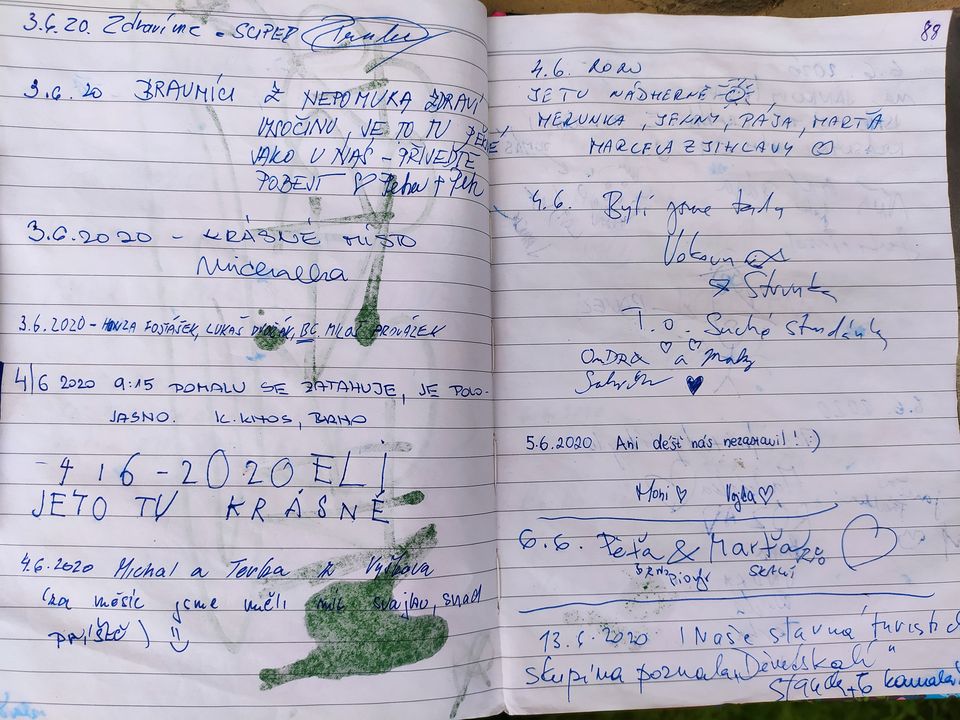 3.6.20. Zdravíme - SUPER
3.6.20 BRAVNÍCI Z NEPOMUKA ZDRAVÍ
VYSOČINU, JE TO TU PĚKNÉ
JAKO U NÁS - PŘIVEDTE
POBEJT ♡ Petra + Petr
3.6.2020 - KRÁSNÉ MÍSTO
3.6.2020 - HONZA FOSTÁŠEK, LUKÁŠ DVOŘÁK, BC. MILOŠ PROVÁZEK
4/6 2020 9:15 POMALU SE ZATAHUJE, JE POLO-
JASNO. K. KHOS, BRNO
4 / 6 - 2020 ELI
JETO TU KRÁSNĚ
4.6.2020 Michal a Terka z
(za měsíc jsme měli mít svajbu, snad
příště) :)
88
4.6. 2020
JE TU NÁDHERNĚ
MERUNKA, JENNY, PÁJA, MARŤA
MARCELA Z JIHLAVY ♡
4.6. Byli jsme tady
Vokoun
Strunka
T.O. Suché studánky
ONDRA ♡ a ♡ Maky
♥
5.6.2020 Ani déšť nás nezastavil! :)
Moni ♡ Vojta ♡
6.6. Péťa & Marťa ♡
BRNO
SKALÍ
13.6.2020 Naše slavná turistic
skupina poznala
+ 6 kamarád